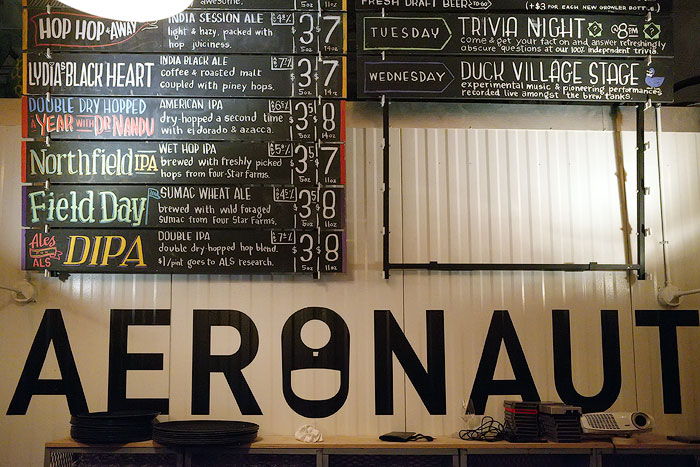 awesome.
HOP HOP & AWAY
INDIA SESSION ALE
4.4%
light & hazy, packed with
hop juiciness.
$3 5oz
$7 14oz
LYDIA'S BLACK HEART
INDIA BLACK ALE
coffee & roasted malt
coupled with piney hops.
$3 5oz
$7 14oz
DOUBLE DRY HOPPED
A YEAR WITH DR NANDU
AMERICAN IPA
dry-hopped a second time
with eldorado & azacca.
$3.5 5oz
$8 14oz
Northfield IPA
WET HOP IPA
brewed with freshly picked
hops from Four Star Farms.
$3.5 5oz
$7 11oz
Field Day
SUMAC WHEAT ALE
brewed with wild foraged
sumac from Four Star Farms.
$3.5 5oz
$8
Ales for ALS
DIPA
DOUBLE IPA
double dry-hopped hop blend.
$1/pint goes to ALS research.
$3.8 5oz
$8 11oz
FRESH DRAFT BEER
(+$3 FOR EACH NEW GROWLER BOTTLE)
TUESDAY
TRIVIA NIGHT
@8PM
come & get your fact on and answer refreshingly
obscure questions at our 100% independent trivia.
WEDNESDAY
DUCK VILLAGE STAGE
experimental music & pioneering performances
recorded live amongst the brew tanks.
AERONAUT